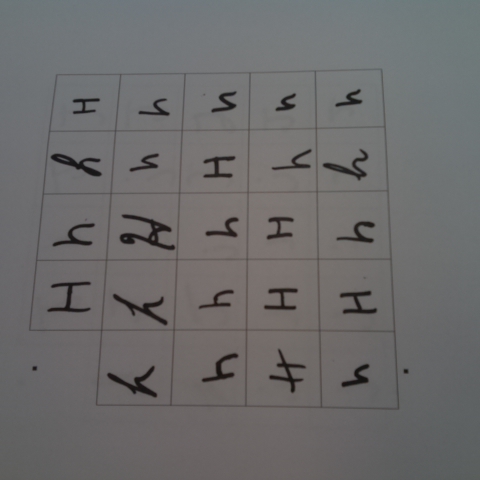 h h h H h
h h H H H
h H h h h
h h H h h
H h h H